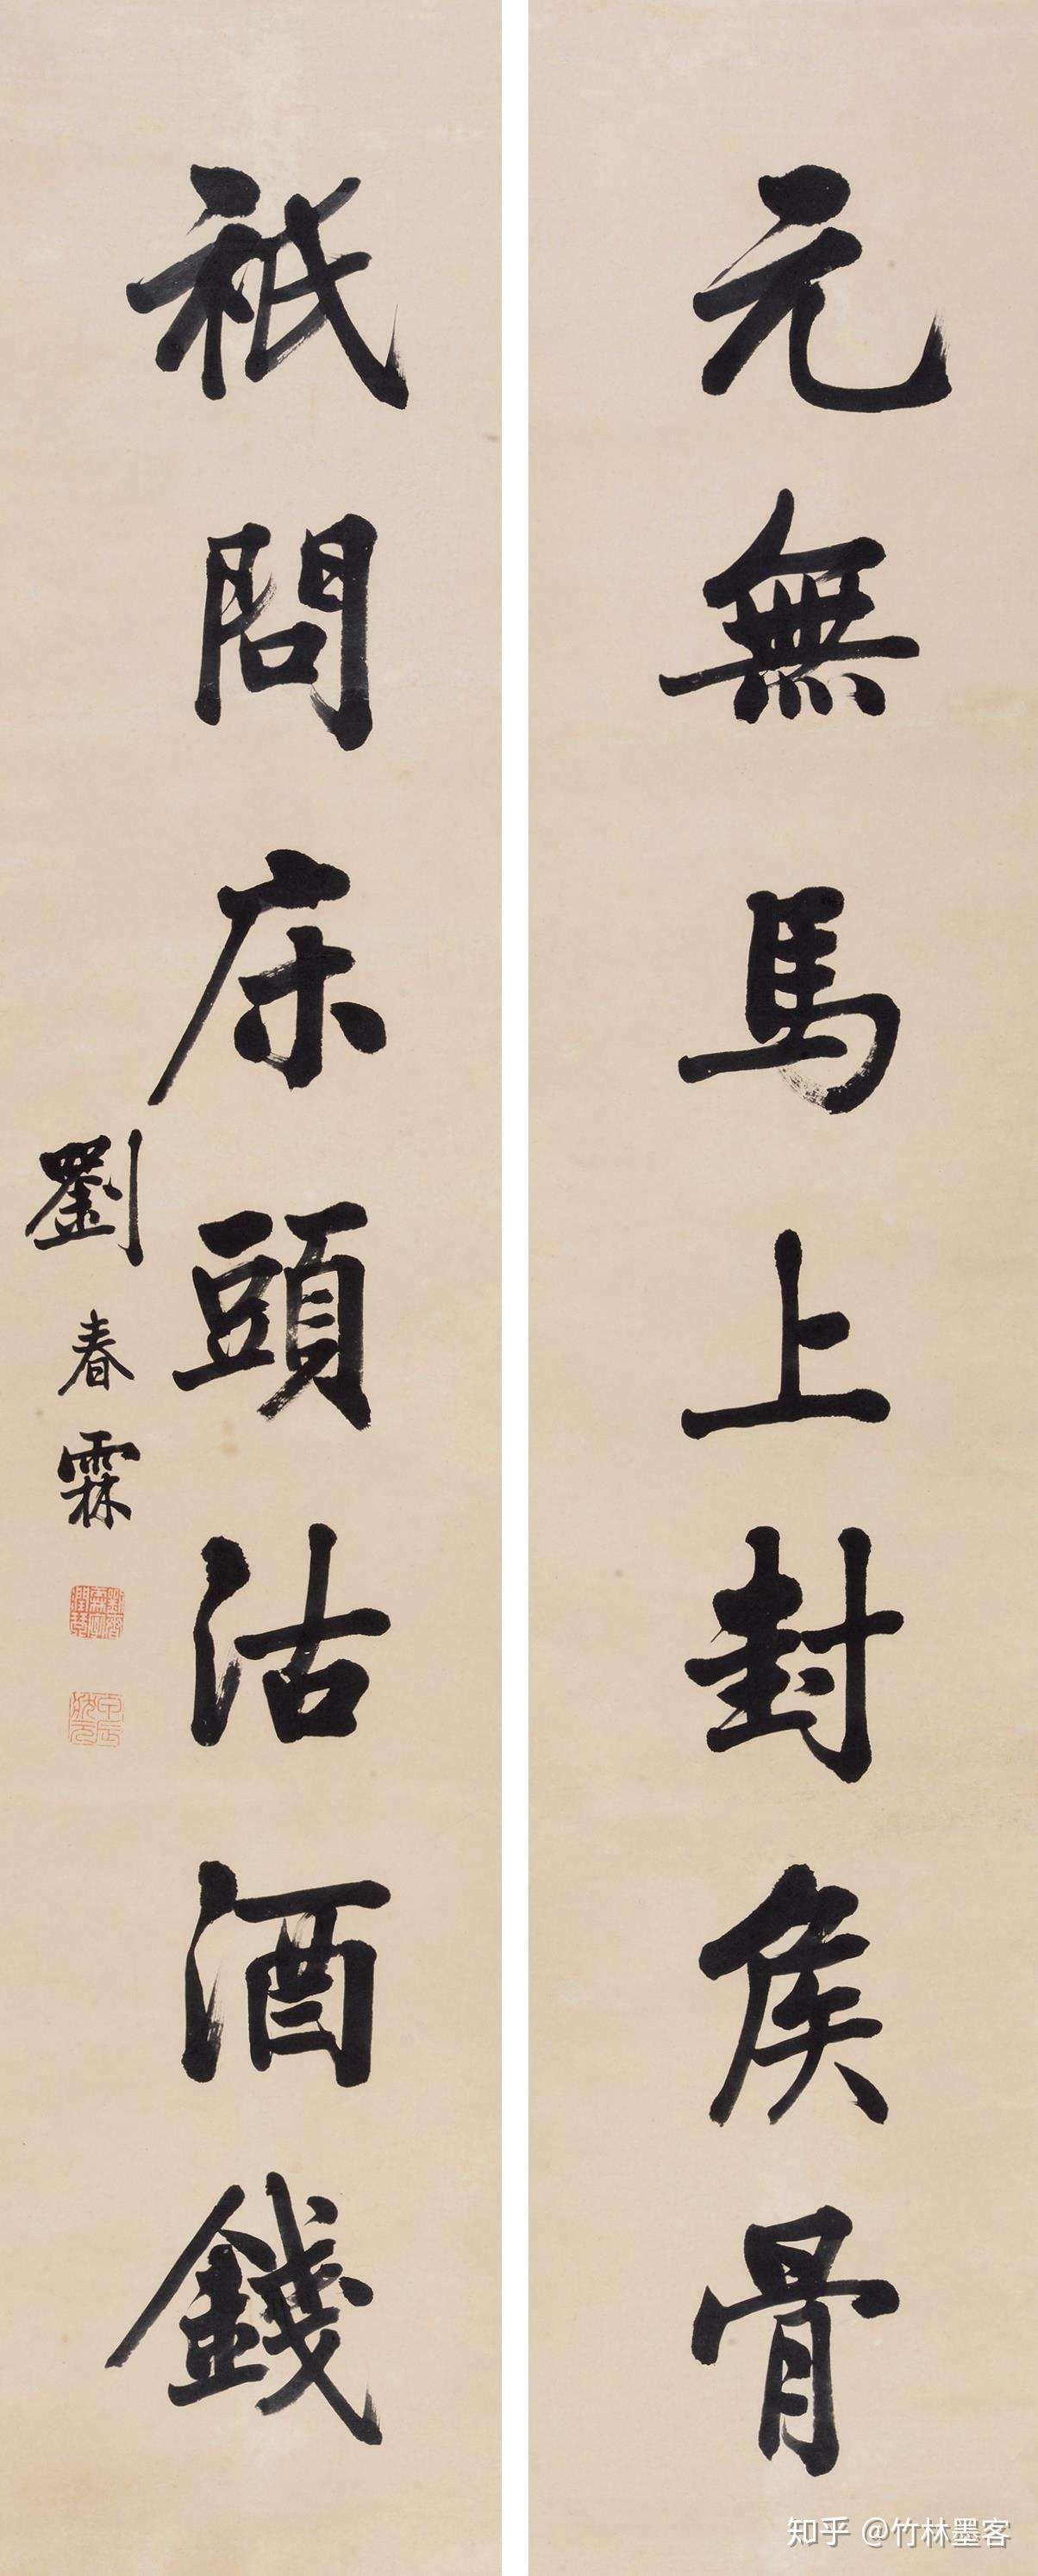 元無馬上封侯骨
祇問床頭沽酒錢
劉春霖
知乎 @竹林墨客